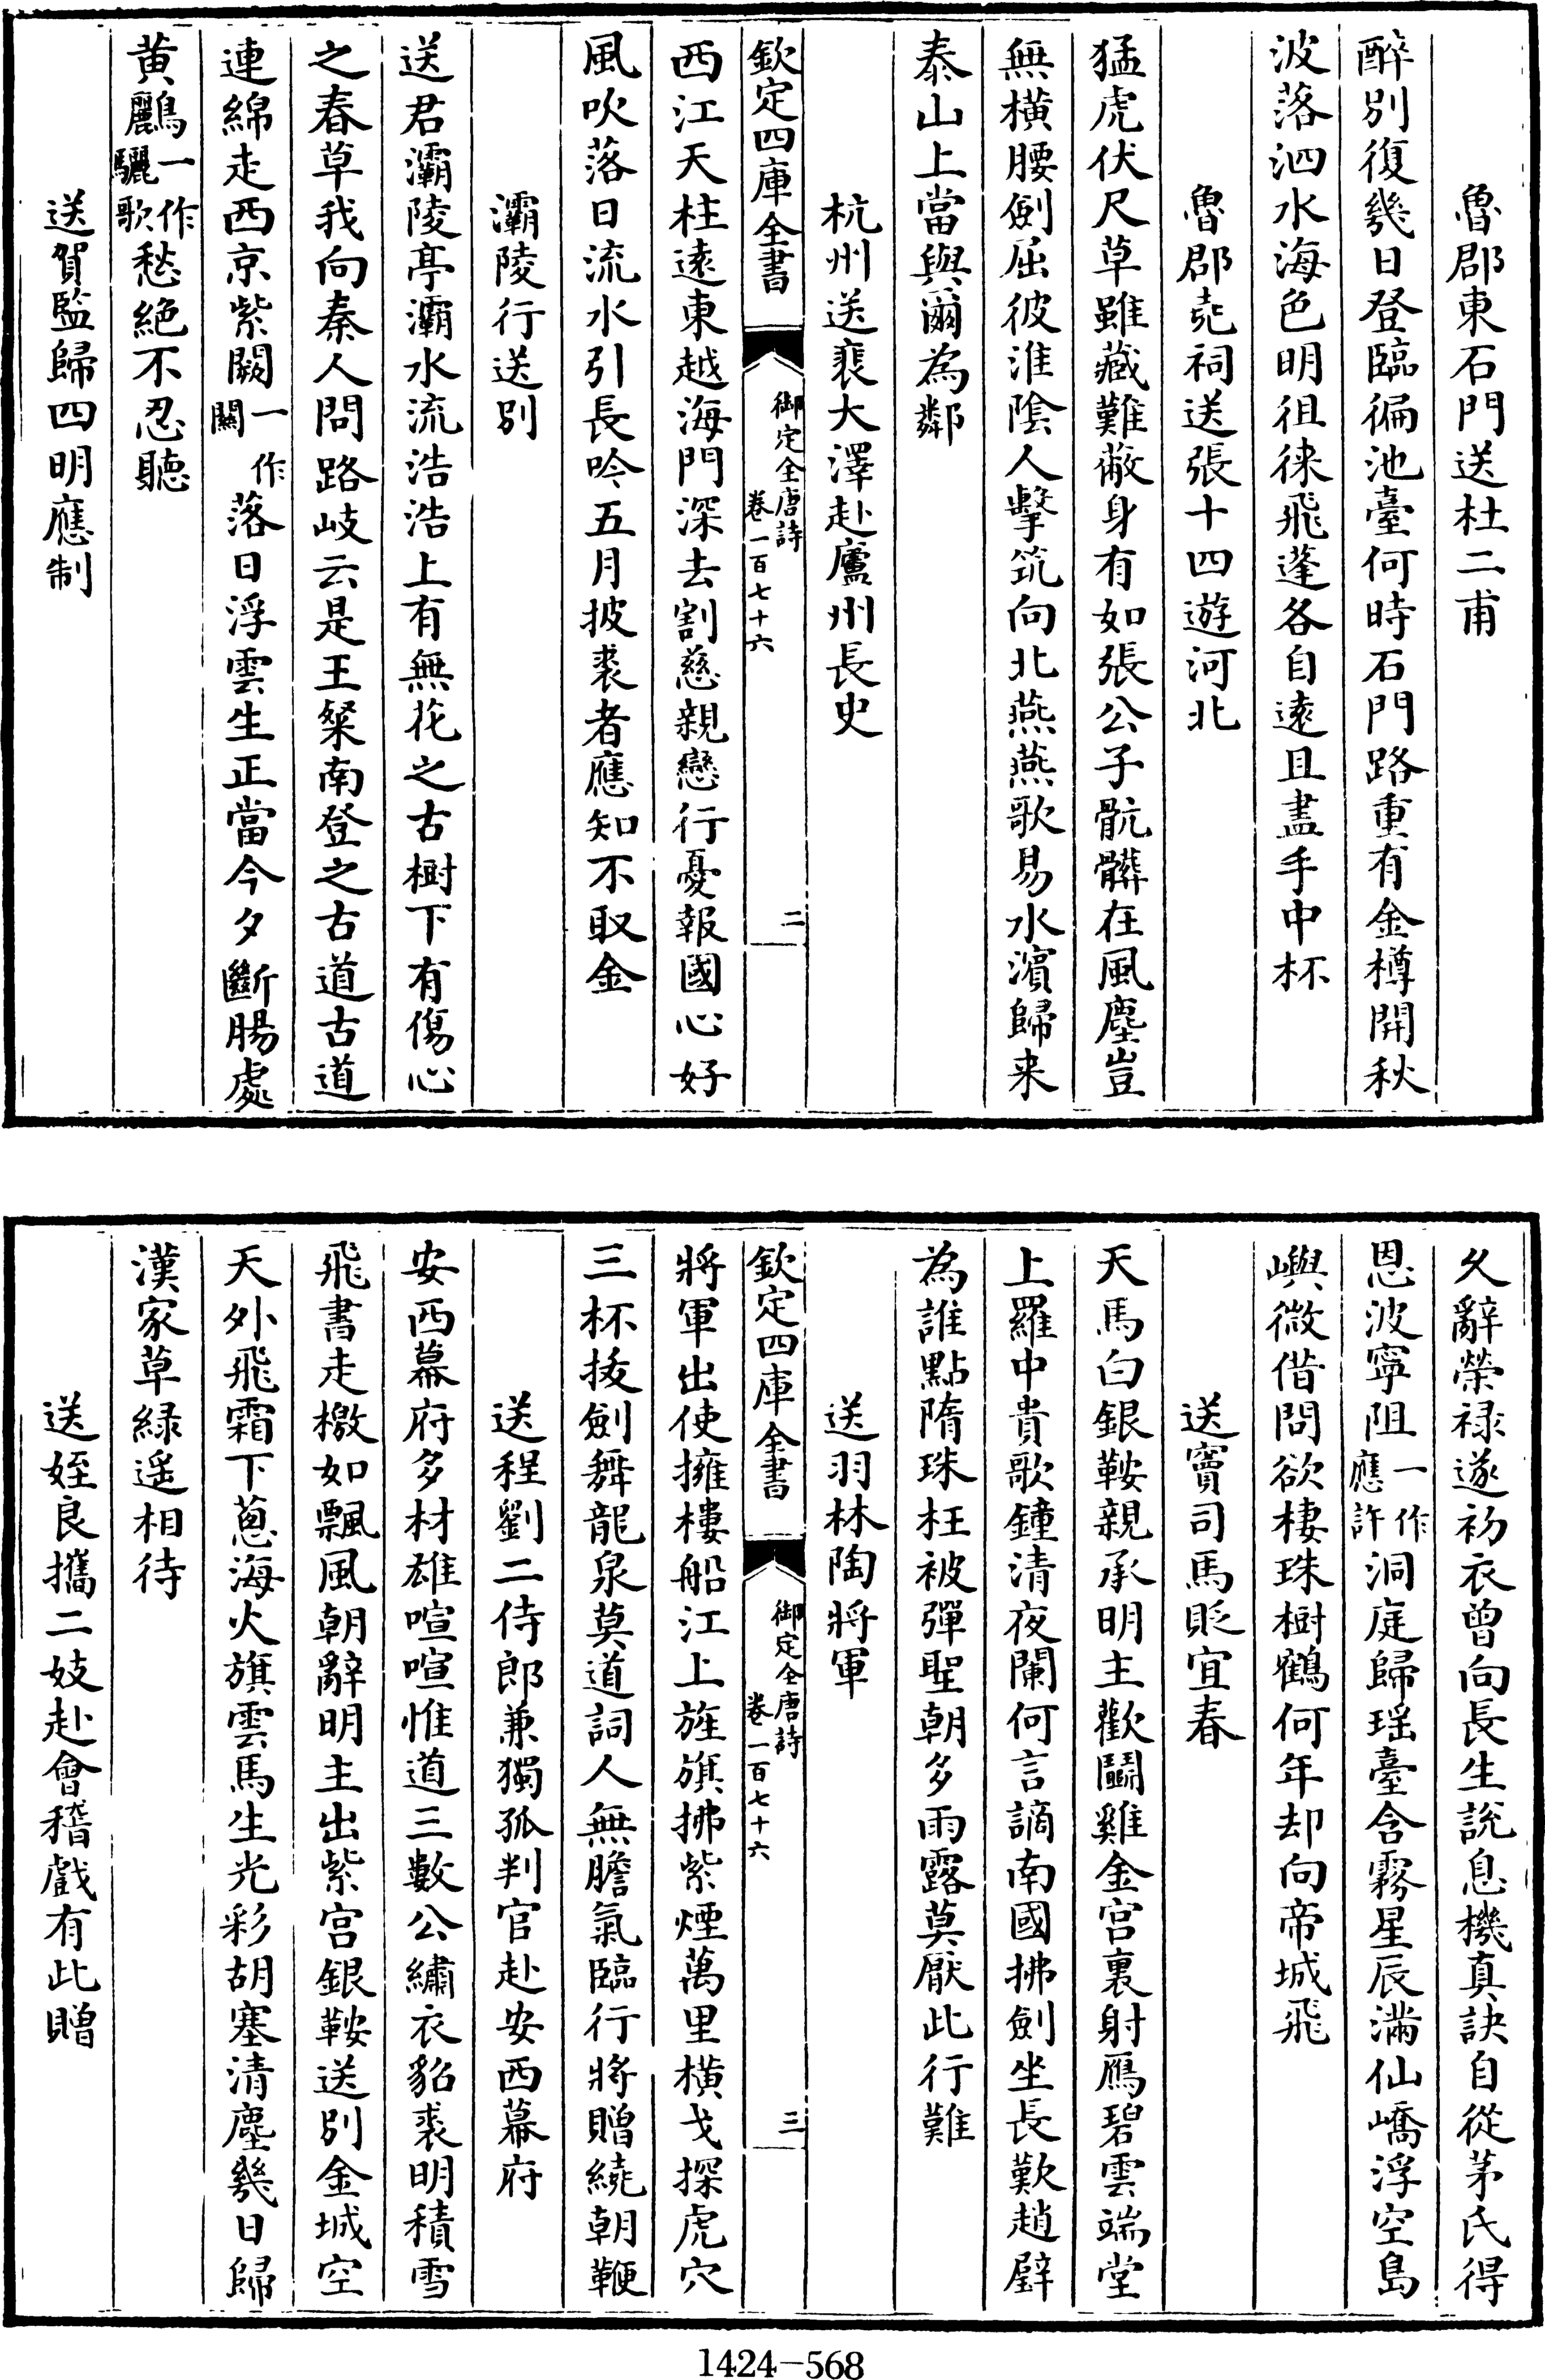 魯郡東石門送杜二甫
醉別復幾日登臨徧池臺何時石門路重有金樽開秋
波落泗水海色明徂徠飛蓬各自遠且盡手中杯
魯郡堯祠送張十四遊河北
猛虎伏尺草雖藏難蔽身有如張公子骯髒在風塵豈
無橫腰劍屈彼淮陰人擊筑向北燕燕歌易水濱歸来
泰山上當與爾為鄰
杭州送裴大澤赴廬州長史
欽定四庫全書 御定全唐詩 卷一百七十六 二
西江天柱遠東越海門深去割慈親戀行憂報國心好
風吹落日流水引長吟五月披裘者應知不取金
灞陵行送別
送君灞陵亭灞水流浩浩上有無花之古樹下有傷心
之春草我向秦人問路岐云是王粲南登之古道古道
連綿走西京紫闕一作關落日浮雲生正當今夕斷腸處
黃鸝一作驪歌愁絕不忍聽
送賀監歸四明應制
久辭榮祿遂初衣曾向長生說息機真訣自從茅氏得
恩波寧阻一作應許洞庭歸瑶臺含霧星辰滿仙嶠浮空島
嶼微借問欲棲珠樹鶴何年却向帝城飛
送竇司馬貶宜春
天馬白銀鞍親承明主歡鬭雞金宮裏射鴈碧雲端堂
上羅中貴歌鐘清夜闌何言謫南國拂劍坐長歎趙璧
為誰點隋珠枉被彈聖朝多雨露莫厭此行難
送羽林陶將軍
欽定四庫全書 御定全唐詩 卷一百七十六 三
將軍出使擁樓船江上旌旗拂紫煙萬里橫戈探虎穴
三杯拔劍舞龍泉莫道詞人無膽氣臨行將贈繞朝鞭
送程劉二侍郎兼獨孤判官赴安西幕府
安西幕府多材雄喧喧惟道三數公繡衣貂裘明積雪
飛書走檄如飄風朝辭明主出紫宮銀鞍送別金城空
天外飛霜下蔥海火旗雲馬生光彩胡塞清塵幾日歸
漢家草綠遥相待
送姪良攜二妓赴會稽戲有此贈
1424-568